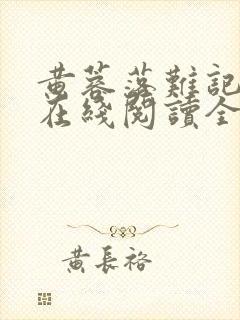 黄蓉落難記
在綫閱讀全
黃長裕